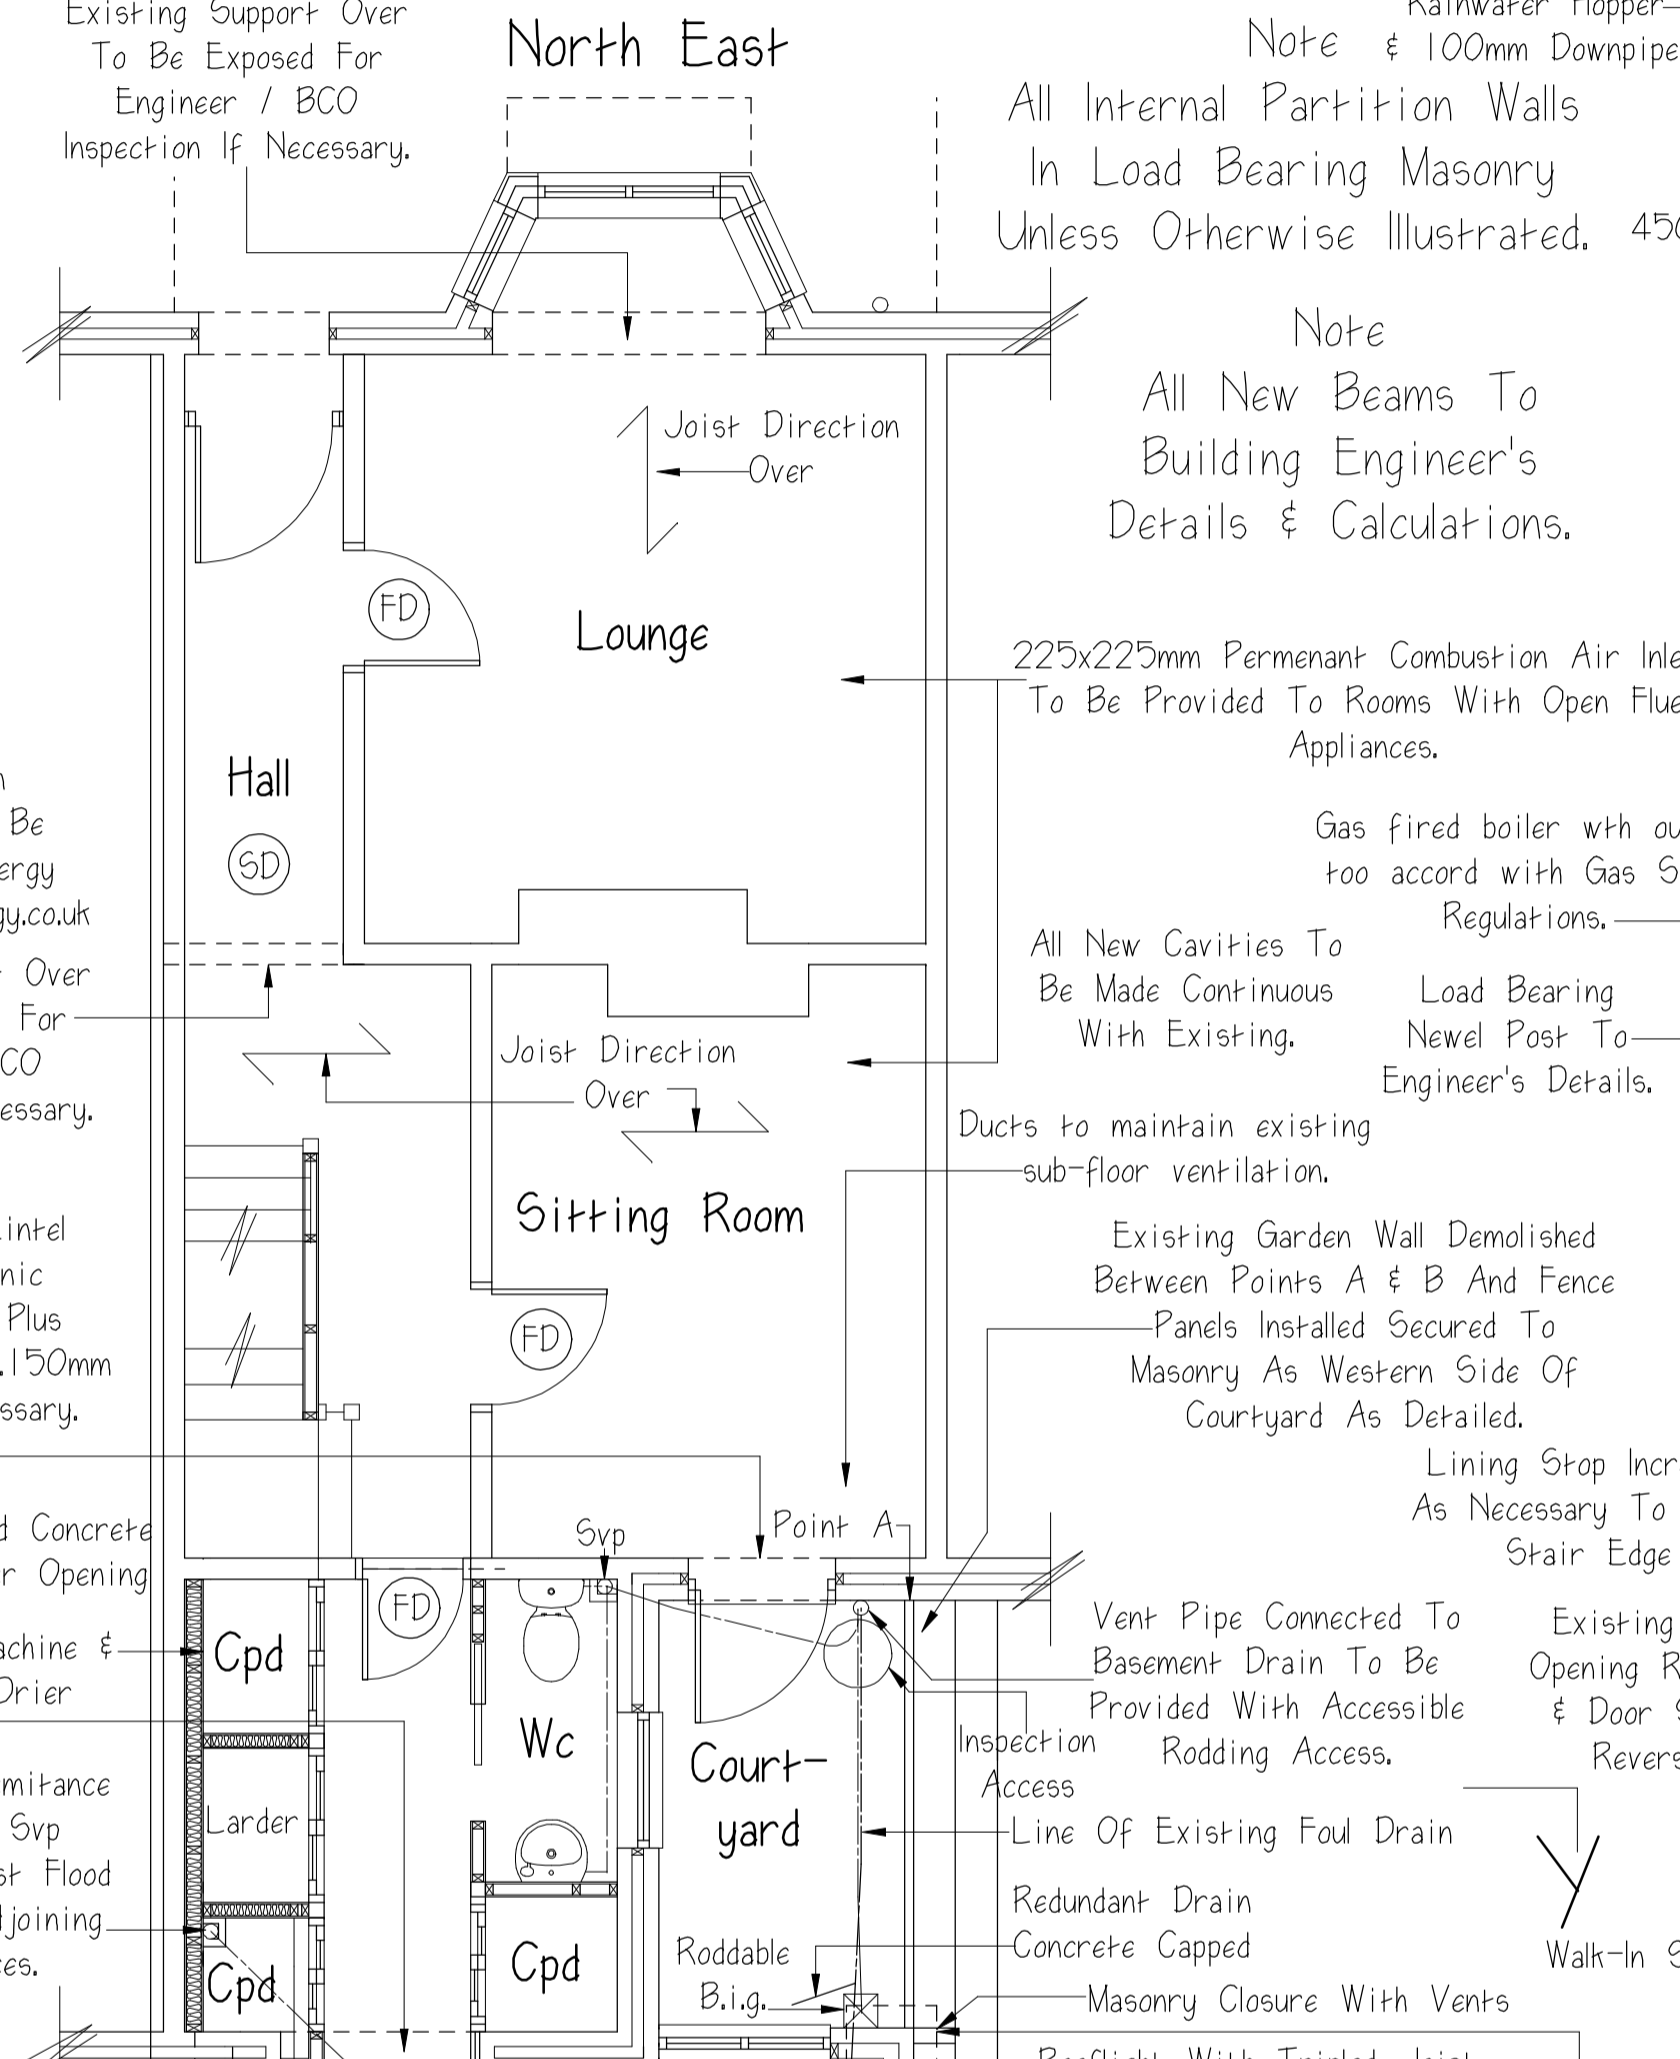 Existing Support Over
To Be Exposed For
Engineer / BCO
Inspection If Necessary.
North East
Rainwater Hopper
& 100mm Downpipe
Note
All Internal Partition Walls
In Load Bearing Masonry
Unless Otherwise Illustrated.
Note
All New Beams To
Building Engineer's
Details & Calculations.
Joist Direction
Over
FD
Lounge
225x225mm Permenant Combustion Air
To Be Provided To Rooms With Open
Appliances.
Hall
SD
Be
gy.co.uk
Over
For
Gas fired boiler wth
too accord with Gas
Regulations.
All New Cavities To
Be Made Continuous
With Existing.
Load Bearing
Newel Post To
Engineer's Details.
Joist Direction
Over
Ducts to maintain existing
sub-floor ventilation.
Sitting Room
Plus
150mm
FD
Existing Garden Wall Demolished
Between Points A & B And Fence
Panels Installed Secured To
Masonry As Western Side Of
Courtyard As Detailed.
Lining Stop
As Necessary To
Stair Edge
Concrete
Opening
Svp
Point A
FD
&
Drier
Cpd
Wc
Court-
yard
Larder
Svp
Flood
Cpd
Cpd
Vent Pipe Connected To
Basement Drain To Be
Provided With Accessible
Rodding Access.
Inspection
Access
Existing
Opening
& Door
Line Of Existing Foul Drain
Redundant Drain
Concrete Capped
Roddable
B.i.g.
Walk-In
Masonry Closure With Vents
Rooflight With Tripled Joist